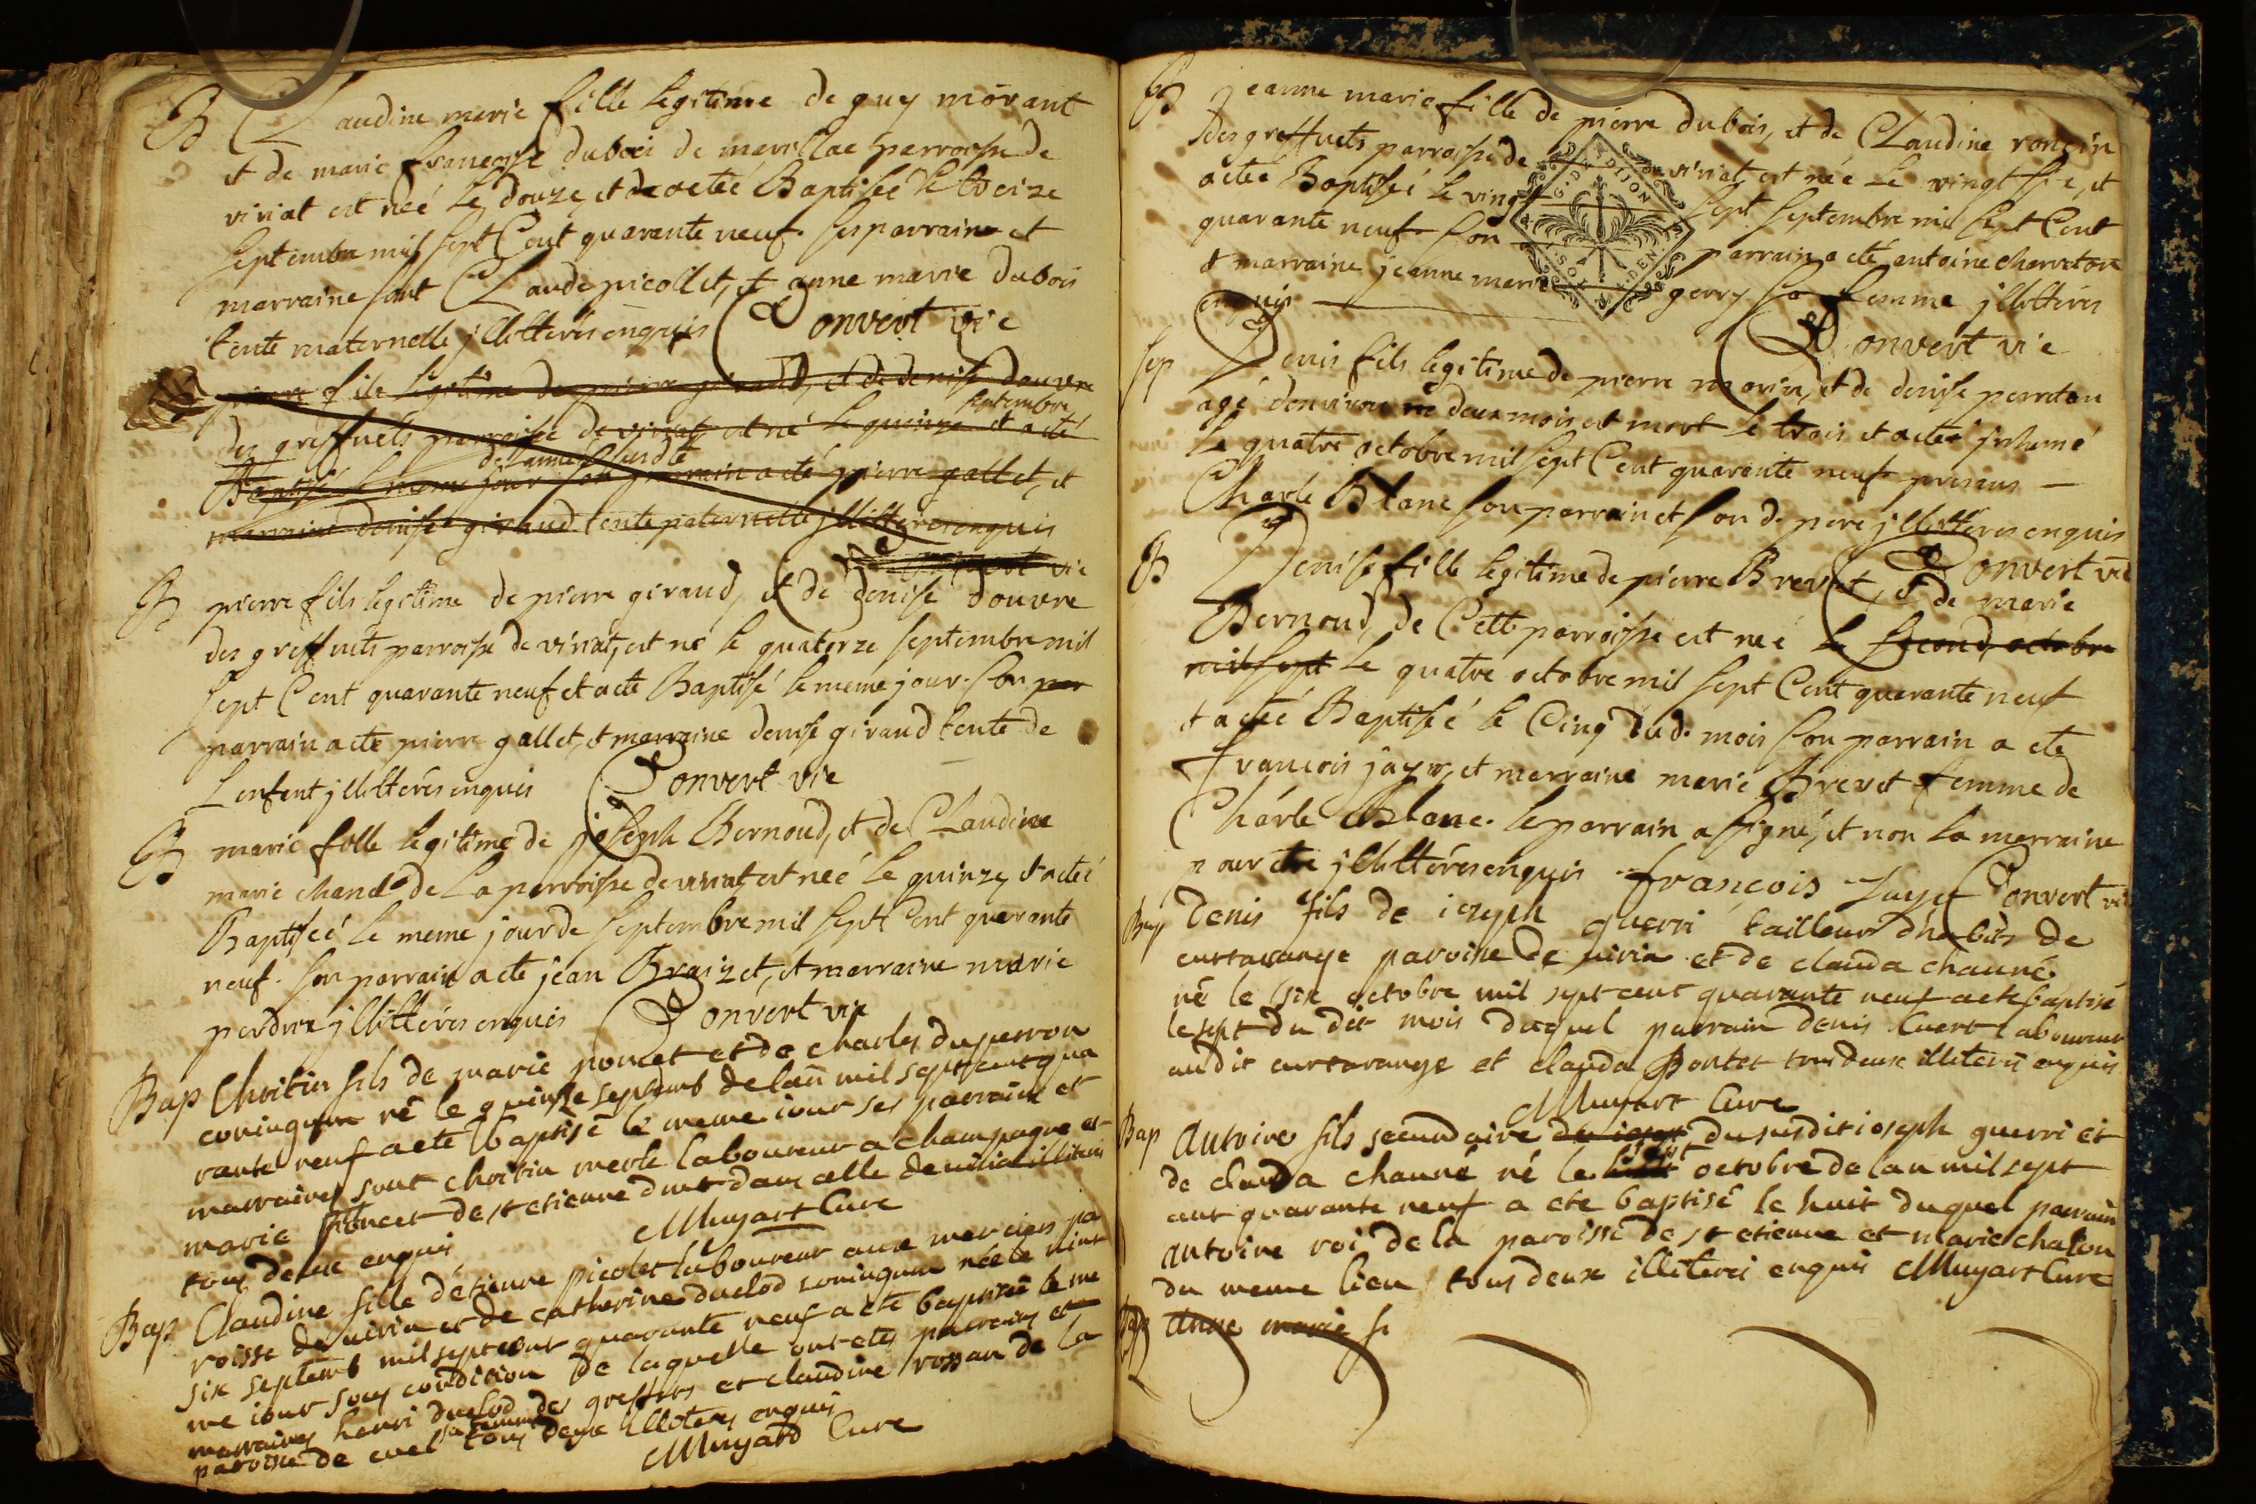 B Claudine marie fille legitime de guy morant
et de marie francoise duboi de marillac parroisse de
viriat est neé le douze, et acteé Baptiseé le treize
septembre mil sept Cent quarante neuf. ses parrain et
marraine sont Claude picollet, et anne marie dubois
tente maternelle jllitterés enquis Convert vic
pierre fils legitime de pierre giraud, et de denise douvre
des greffuets parroisse de viriat, est né le quinze septembre et acté
Baptisé le meme jour de l'année susdte son parrain acté pierre gallet, et
marraine denise giraud tente paternelle jllitterés enquis
Convert vic
B pierre fils legitime de pierre giraud, et de denise douvre
des greffuets parroisse de viriat, est né le quatorze septembre mil
sept Cent quarante neuf et acté Baptisé le meme jour. son par
parrain acté pierre gallet, et marraine denise giraud tente de
Lenfent jllitterés enquis Convert vic
B marie fille legitime de joseph Bernoud, et de Claudine
marie chanel de La parroisse de viriat est neé le quinze, et acteé
Baptiseé le meme jour de septembre mil sept Cent quarante
neuf. son parrain acté jean Braizet, et marraine marie
perdrix jllitterés enquis Convert vic
Bap Christin fils de marie poncet et de charles duperron
coniugum né le quinze septemb de lan mil sept cent qua
rante neuf a eté baptisé le meme iour ses parrain et
marraine sont christin merle laboureur a champagne et
marie poncet de st etienne dut dans celle de viria illiterés
tous deux enquis MMuyart Cure
Bap Claudine fille détienne picolet laboureur aux merciers pa
roisse de viria et de catherine duclod coniugum néele vint
six septemb mil sept cent quarante neuf a eté baptisée le me
me iour sous condition de laquelle ont etés parrain et
marraine henri duclod des greffets et claudine rossan de la
paroisse de cuel sa femme tous deux illiterés enquis
MMuyard Cure
B jeanne marie fille de pierre dubois, et de Claudine roncin
des greffuets parroisse de viriat, est née le vingt six, et
acteé Baptiseé le vingt sept septembre mil sept Cent
quarante neuf. son parrain acté antoine charreton
et marraine jeanne marie gerry sa femme jllitterés
enquis Convert vic
G. DE DIJON
SOLS DEN
sep Denis fils legitime de pierre morin, et de denise perreton
agé denviron deux mois est mort le trois et acté jnhumé
le quatre octobre mil sept Cent quarante neuf presens
Charle Blanc son parrain et son d. pere jllitterés enquis
Convert vic
B Denise fille legitime de pierre Brevet, et de marie
Bernoud, de Cette parroisse est neé le second octobre
mil sept le quatre octobre mil sept Cent quarante neuf
et acteé Baptiseé le Cinq dud. mois son parrain a eté
francois jayr, et marraine marie Brevet femme de
Charle Blanc. le parrain a signé, et non la marraine
pour etre jllitterés enquis françois Jayr Convert vic
Bap Denis fils de ioseph guerri tailleur d'habits de
curtarange paroisse de viria et de clauda chauné
né le six octobre mil sept cent quarante neuf a eté baptisé
le sept du dit mois duquel parrain denis Cuert laboureur
audit curtarange et clauda Pontet tous deux illiterés enquis
MMuyart Cure
Bap Antoine fils secundaire de iosep du susdit ioseph guerri et
de clauda chauné né le sept octobre de lan mil sept
cent quarante neuf a eté baptisé le huit duquel parrain
antoine roi de la paroisse de st etienne et marie chalon
du meme lieu tous deux illiterés enquis MMuyart Cure
Bap anne marie fi